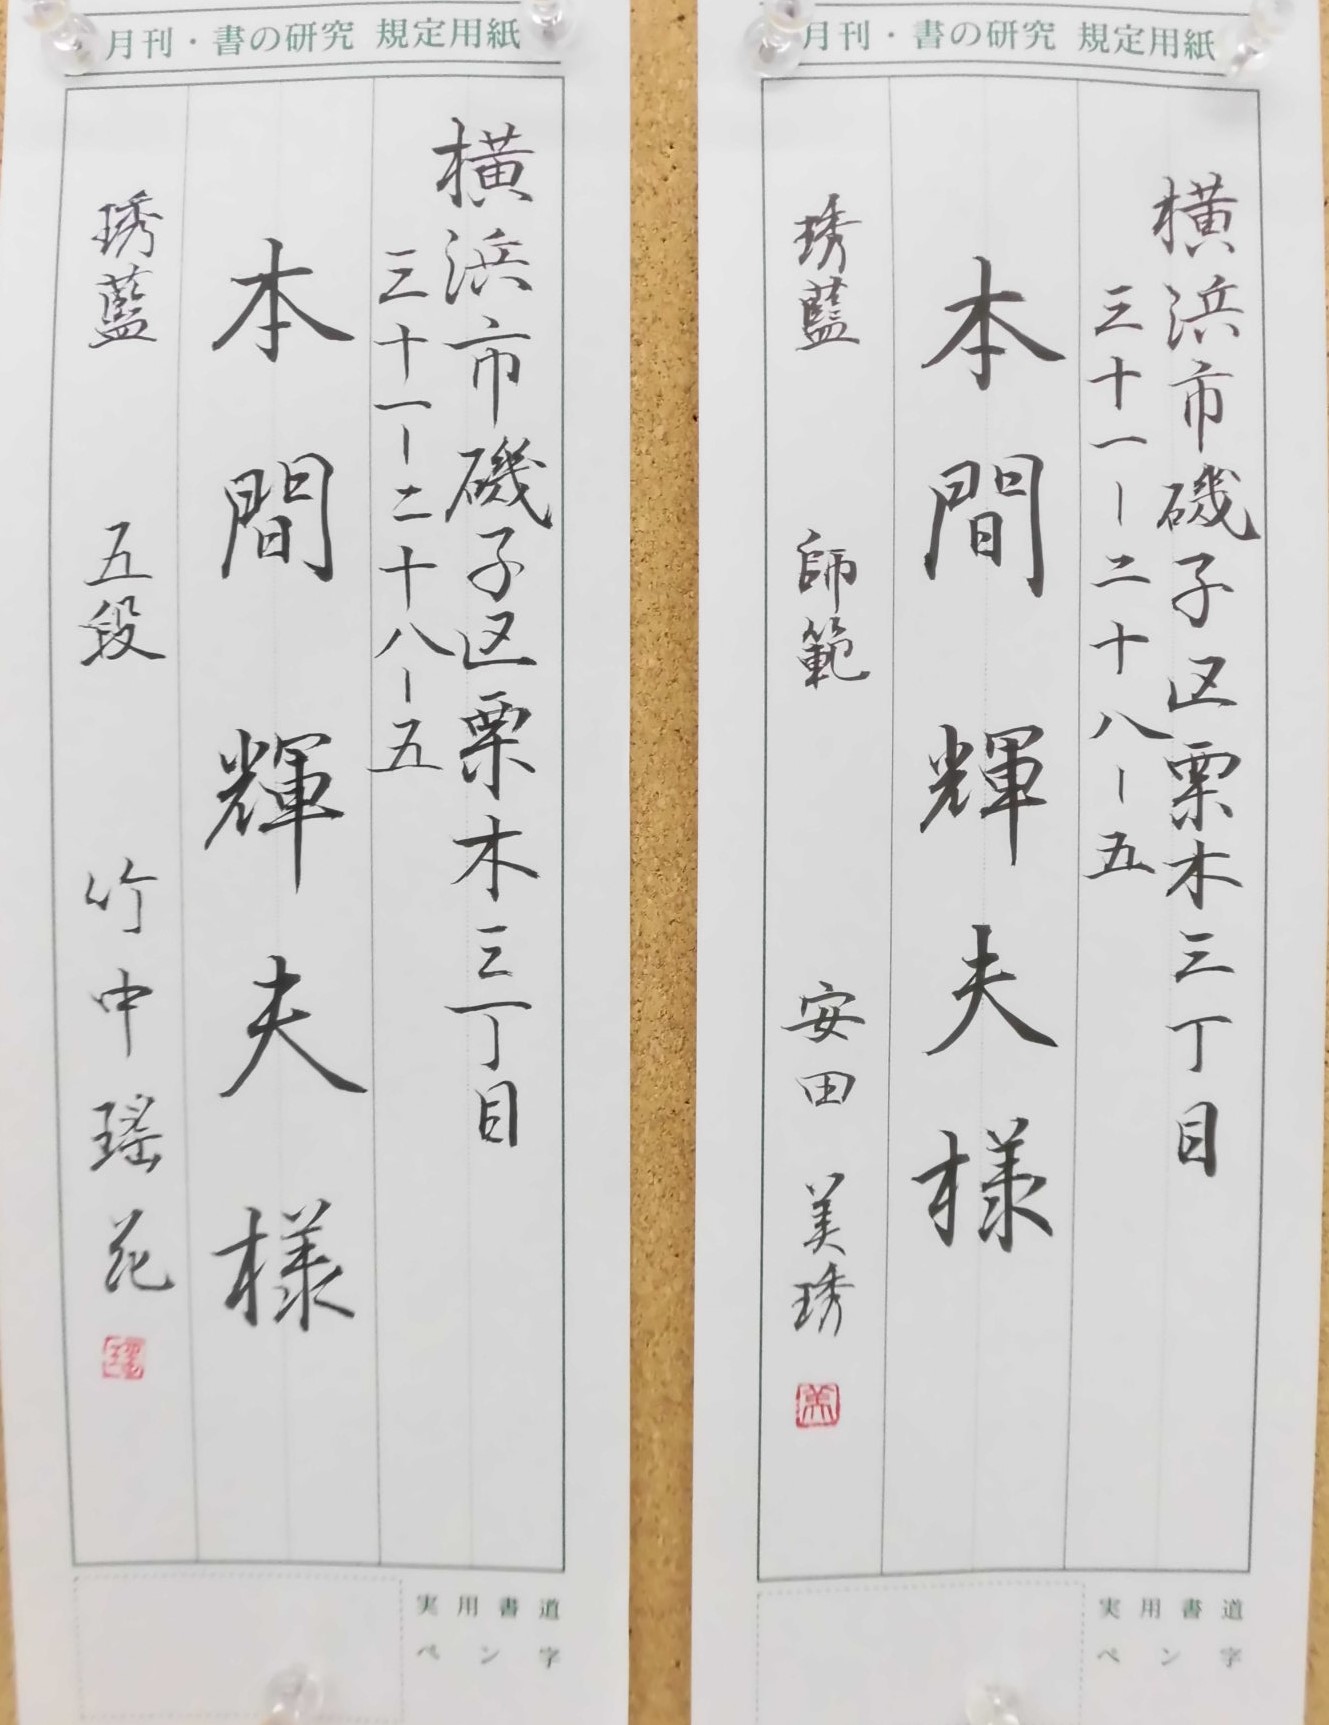 月刊・書の研究 規定用紙
横浜市磯子区栗木三丁目
三十一ー二十八ー五
本間輝夫様
琇藍 五段 竹中瑤花
実用書道
ペン字
月刊・書の研究 規定用紙
横浜市磯子区栗木三丁目
三十一ー二十八ー五
本間輝夫様
琇藍 師範 安田美琇
美
実用書道
ペン字